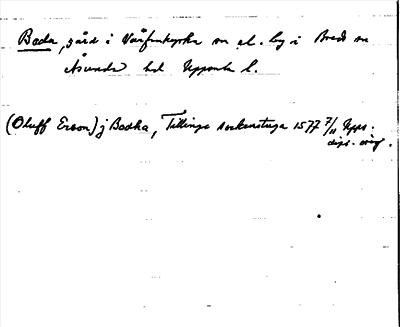 Bada, gård i Vårfrukyrka sn el. by i Breds sn
Åsunda hd Uppsala l.
(Oluff Erson) j Badka, Tillinge sockenstuga 1577 7/11 Upps.
dips. orig.